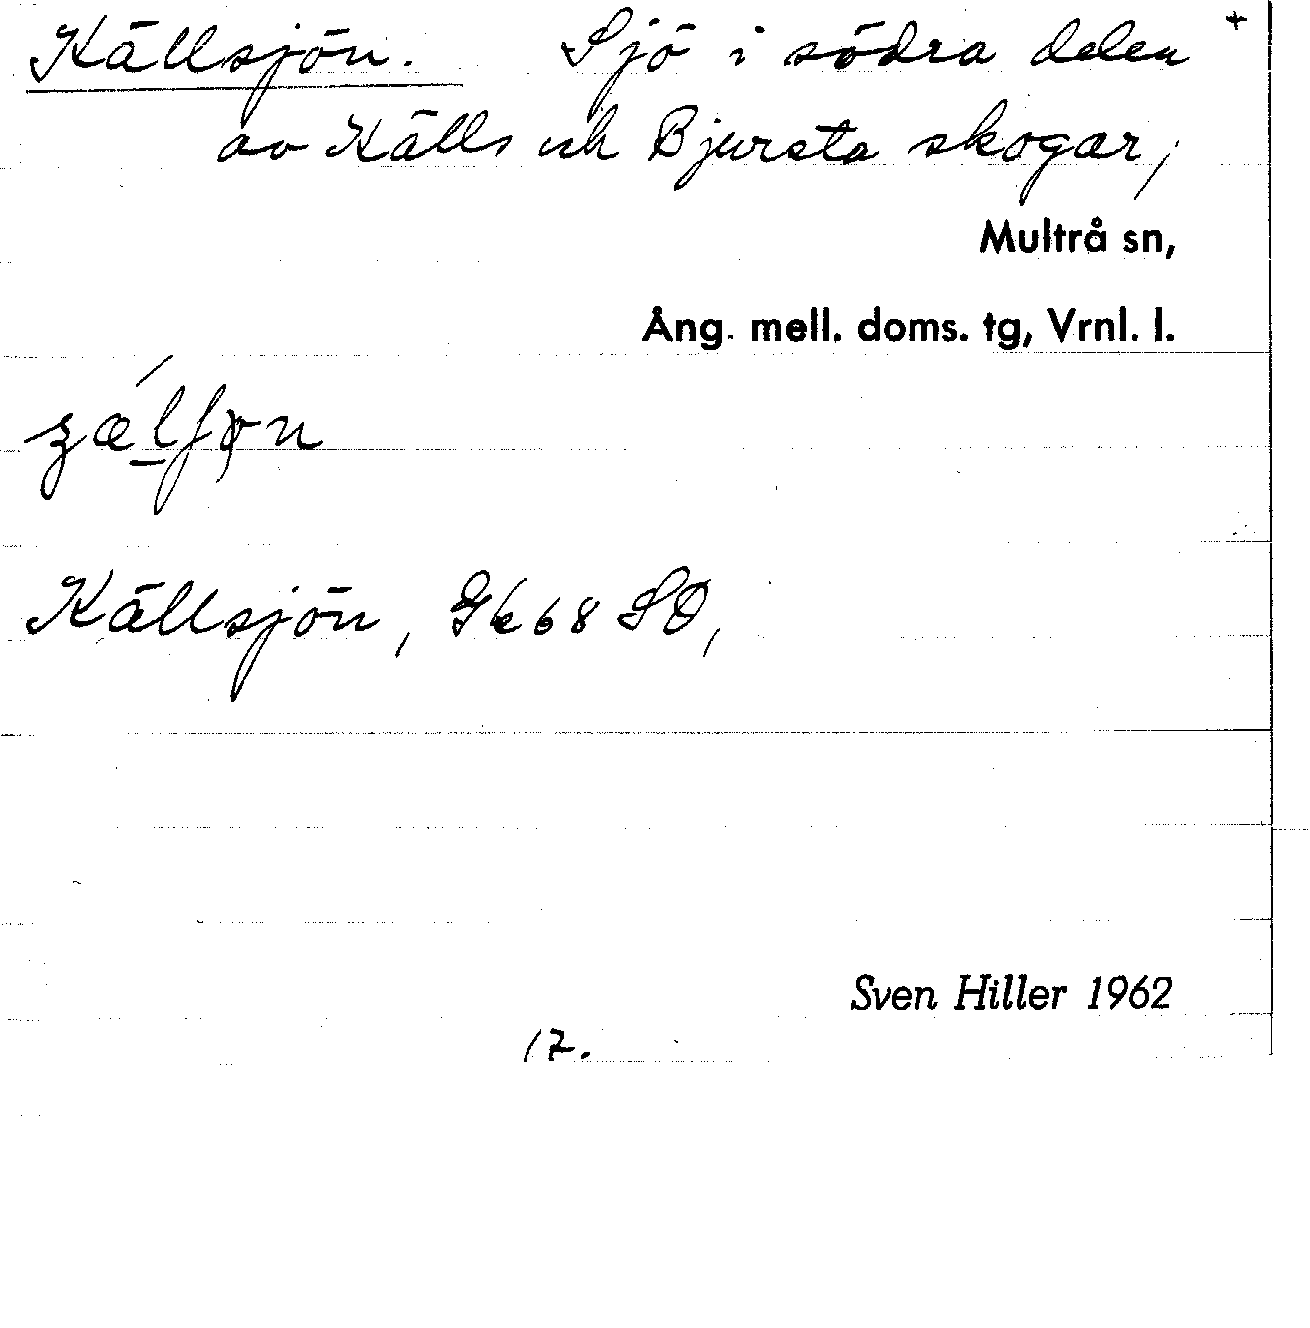 Källsjön. Sjö i södra delen +
av Källs och Bjursta skogar,
Multrå sn,
Ång. mell. doms. tg, Vrnl. l.
Källsjön, Gk 68 SO,
Sven Hiller 1962
17.